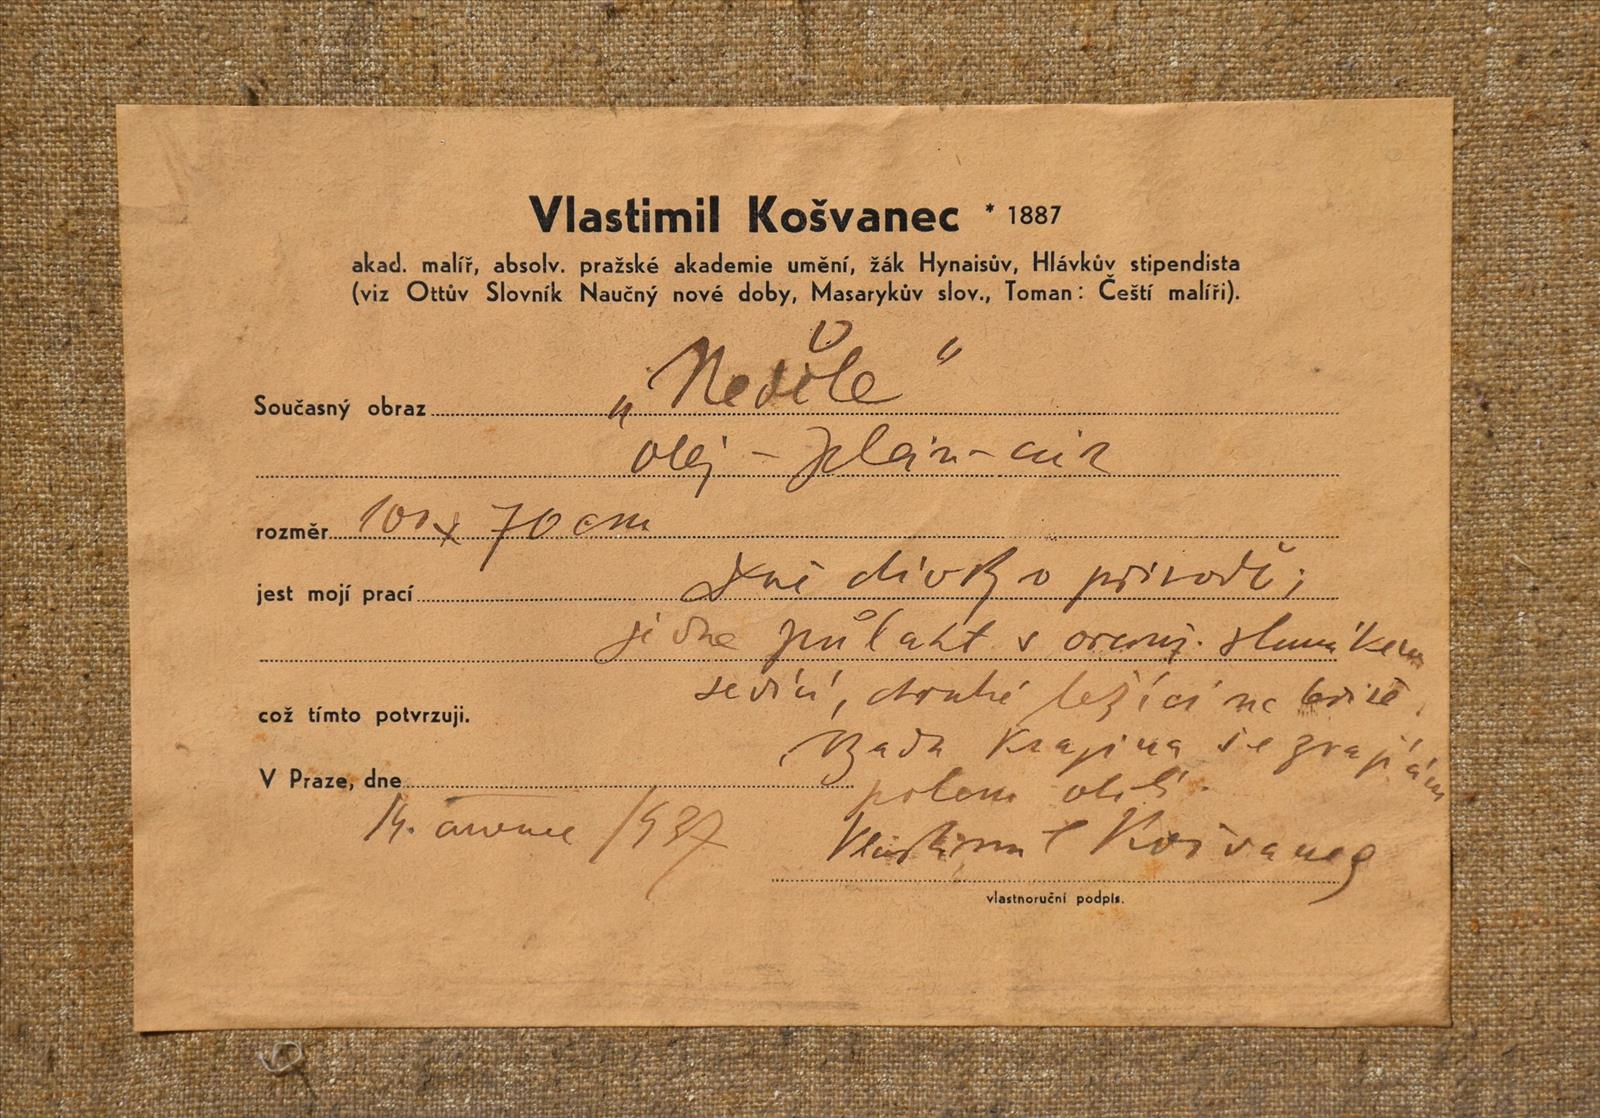 Vlastimil Košvanec * 1887
akad. malíř, absolv. pražské akademie umění, žák Hynaisův, Hlávkův stipendista
(viz Ottův Slovník Naučný nové doby, Masarykův slov., Toman: Čeští malíři).
Současný obraz „Neděle“
olej – plein-air
rozměr 100 x 70 cm
jest mojí prací dvě dívky v přírodě;
jedna půlakt s oranž. slunníkem
sedící, druhá ležící na
což tímto potvrzuji.
krajina se zrajícím
V Praze, dne
polem obilí.
14. 1937 Vlastimil Košvanec
vlastnoruční podpis.